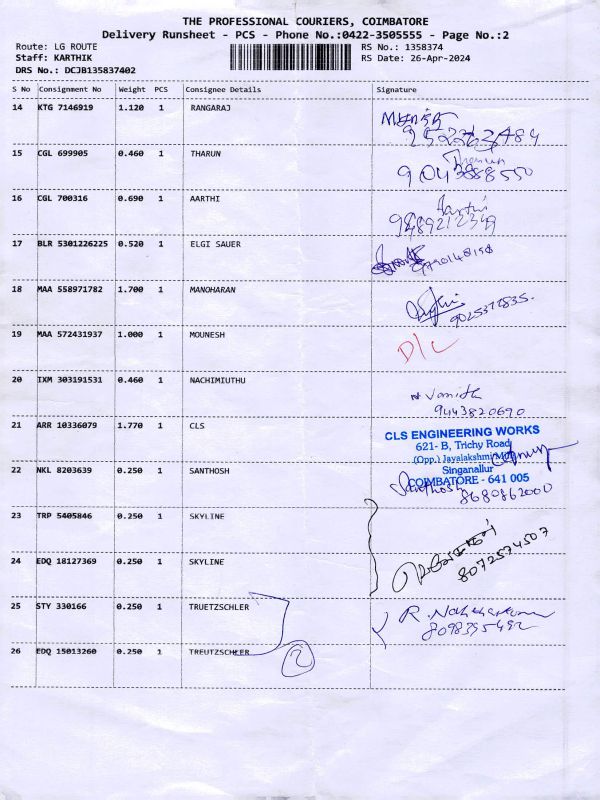 THE PROFESSIONAL COURIERS, COIMBATORE
Delivery Runsheet - PCS - Phone No.:0422-3505555 - Page No.:2
Route: LG ROUTE RS No.: 1358374
Staff: KARTHIK RS Date: 26-Apr-2024
DRS No.: DCJB135837402
S No Consignment No Weight PCS Consignee Details Signature
14 KTG 7146919 1.120 1 RANGARAJ
15 CGL 699905 0.460 1 THARUN Tharun
9043888550
16 CGL 700316 0.690 1 AARTHI Aarthi
17 BLR 5301226225 0.520 1 ELGI SAUER
18 MAA 558971782 1.700 1 MANOHARAN
9025372835.
19 MAA 572431937 1.000 1 MOUNESH D/L
20 IXM 303191531 0.460 1 NACHIMIUTHU Vanith
9443820690
21 ARR 10336079 1.770 1 CLS
CLS ENGINEERING WORKS
621- B, Trichy Road,
(Opp.) Jayalakshmi
Singanallur
COIMBATORE - 641 005
22 NKL 8203639 0.250 1 SANTHOSH Santhosh
8680862000
23 TRP 5405846 0.250 1 SKYLINE
24 EDQ 18127369 0.250 1 SKYLINE
8072574507
25 STY 330166 0.250 1 TRUETZSCHLER
8098395492
26 EDQ 15013260 0.250 1 TREUTZSCHLER 2